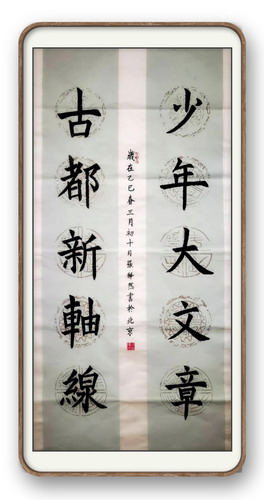 少年大文章
古都新軸線
歲在乙巳春三月初十日張梓然書於北京